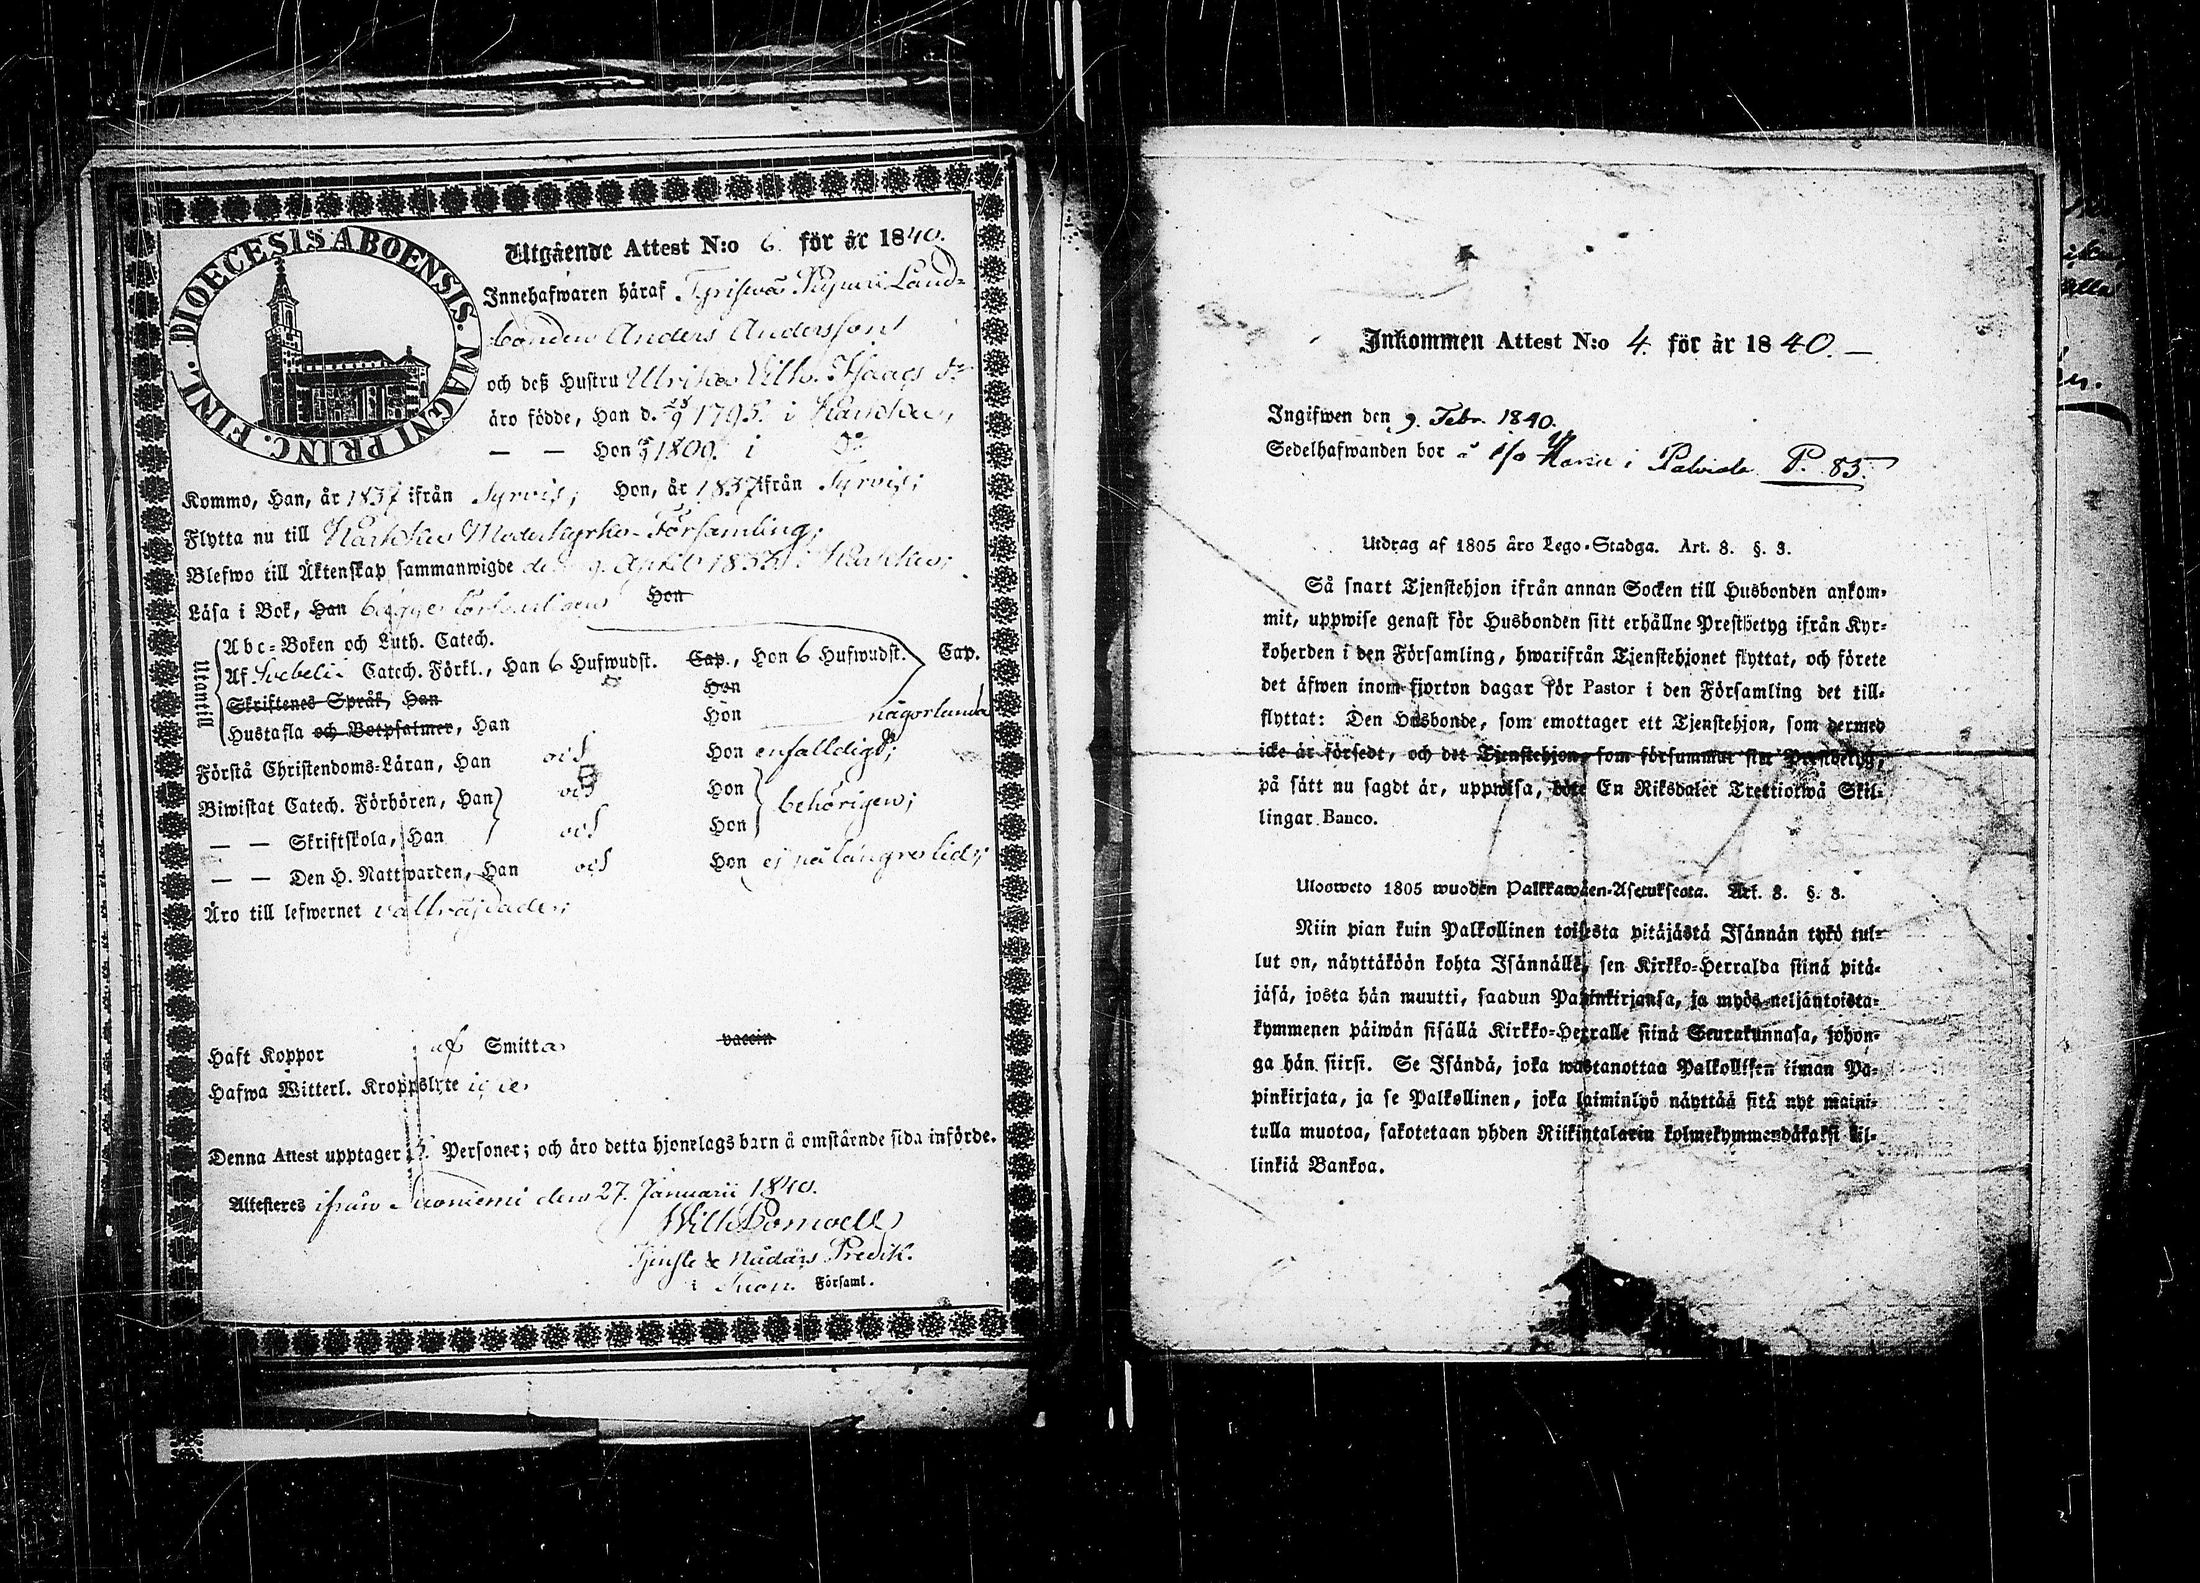 DIOECESIS ABOENSIS. MAGNI PRINC. FINL.
Utgående Attest N:o 6. för år 1840.
Innehafwaren häraf Land-
bonden Anders Andersson
och deß Hustru Ulrika Vilh. Isaacs dr
äro födde, Han d. 1795. i Karkku,
— — Hon 1800. i do
Kommo, Han, år 1837 ifrån Tyrvis; Hon, år 1837 ifrån Tyrvis;
Flytta nu till Karkku Moderkyrko-Församling;
Blefwo till Äktenskap sammanwigde den 9. April i Karkku;
Läsa i Bok, Han begge Hon
Utantill
Abc-Boken och Luth. Catech.
Af Svebelii Catech. Förkl., Han 6 Hufwudst. Cap., Hon 6 Hufwudst. Cap.
Skriftenes Språk, Han Hon
Hustafla och Botpsalmer, Han Hon någorlunda
Förstå Christendoms-Läran, Han och Hon enfalldigt;
Biwistat Catech. Förhören, Han och Hon behörigen;
— — Skriftskola, Han och Hon
— — Den H. Nattwarden, Han och Hon ej på längre tid;
Äro till lefwernet välfräjdade;
Haft Koppor af Smitta vaccin
Hafwa Witterl. Kroppslyte
Denna Attest upptager Personer; och äro detta hjonelags barn å omstående sida införde.
Attesteres ifrån Suoniemi den 27. Januarii 1840.
Tjenste & Nådårs Predik.
i Suon. Församl.
Inkommen Attest N:o 4. för år 1840. —
Ingifwen den 9. Febr. 1840.
Sedelhafwanden bor å i P. 85.
Utdrag af 1805 års Lego-Stadga. Art. 8. §. 3.
Så snart Tjenstehjon ifrån annan Socken till Husbonden ankom-
mit, uppwise genast för Husbonden sitt erhållne Prestbetyg ifrån Kyr-
koherden i den Församling, hwarifrån Tjenstehjonet flyttat, och förete
det äfwen inom fjorton dagar för Pastor i den Församling det till-
flyttat: Den Husbonde, som emottager ett Tjenstehjon, som dermed
icke är försedt, och det Tjenstehjon, som försummar sitt Prestbetyg,
på sätt nu sagdt är, uppwisa, böte En Riksdaler Trettiotwå Skil-
lingar Banco.
Ulosweto 1805 wuoden Palkkawäen-Asetuksesta. Art. 8. §. 3.
Niin pian kuin Palkollinen toisesta pitäjästä Isännän tykö tul-
lut on, näyttäköön kohta Isännälle, sen Kirkko-Herralda siinä pitä-
jäsä, josta hän muutti, saadun Papinkirjansa, ja myös neljäntoista-
kymmenen päiwän sisällä Kirkko-Herralle siinä Seurakunnasa, johon-
ga hän siirsi. Se Isändä, joka wastanottaa Palkollisen ilman Pa-
pinkirjata, ja se Palkollinen, joka laiminlyö näyttää sitä nyt maini-
tulla muotoa, sakotetaan yhden Riikintalarin kolmekymmendäkaksi kil-
linkiä Bankoa.